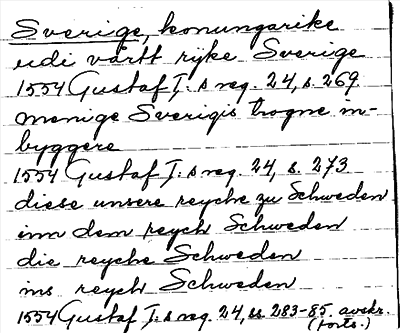 Sverige, konungarike
udi vårtt ryke Sverige
1554 Gustaf I:s reg. 24, s. 269
menige Sverigis trogne in-
byggere
1554 Gustaf I:s reg. 24, s. 273
diese unsere reyche zu Schweden
inn dem reych Schweden
die reyche Schweden
ins reych Schweden
1554 Gustaf I:s reg. 24, ss. 283-85. avskr.
(forts.)